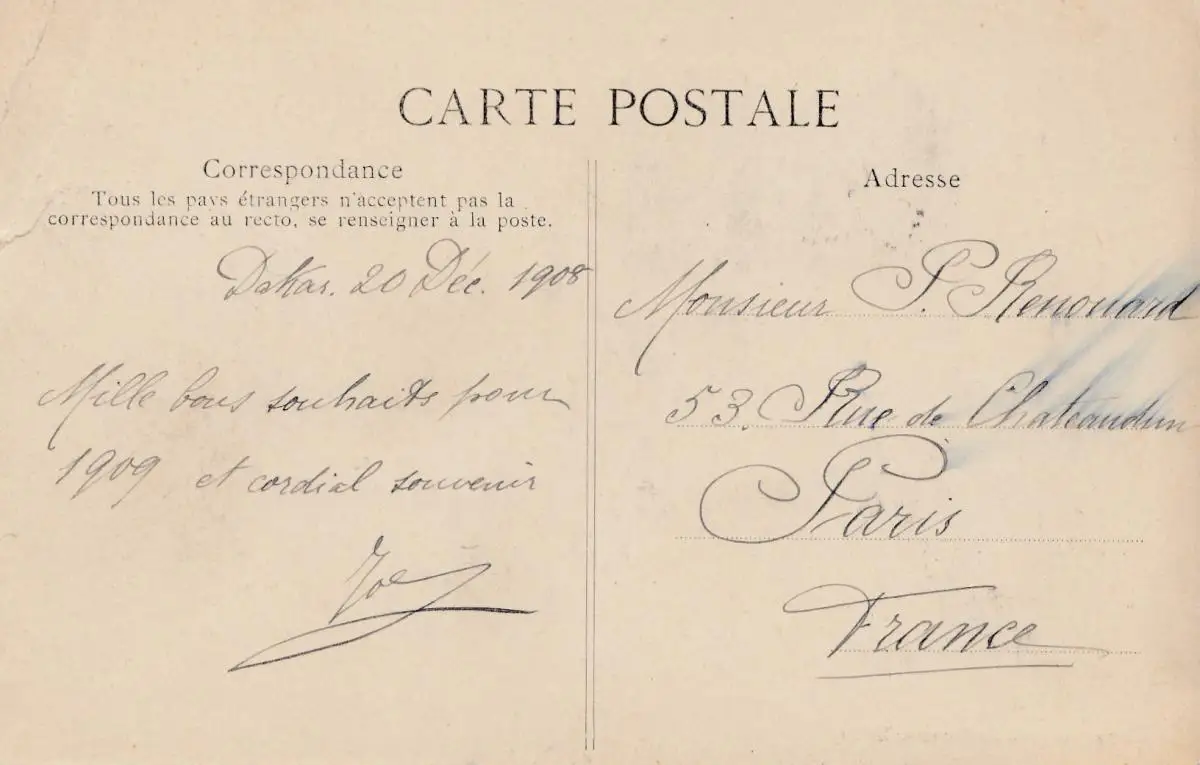 CARTE POSTALE
Correspondance
Tous les pays étrangers n'acceptent pas la
correspondance au recto, se renseigner à la poste.
Dakar. 20 Déc. 1908
Mille bons souhaits pour
1909 et cordial souvenir
Joe
Adresse
Monsieur P. Renouard
53. Rue de Chateaudun
Paris
France